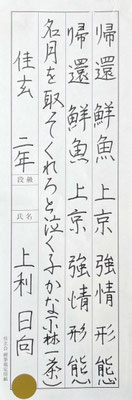 帰還 鮮魚 上京 強情 形態
帰還 鮮魚 上京 強情 形態
名月を取てくれろと泣く子かな(小林一茶)
佳玄 二年
段級
氏名
上利 日向